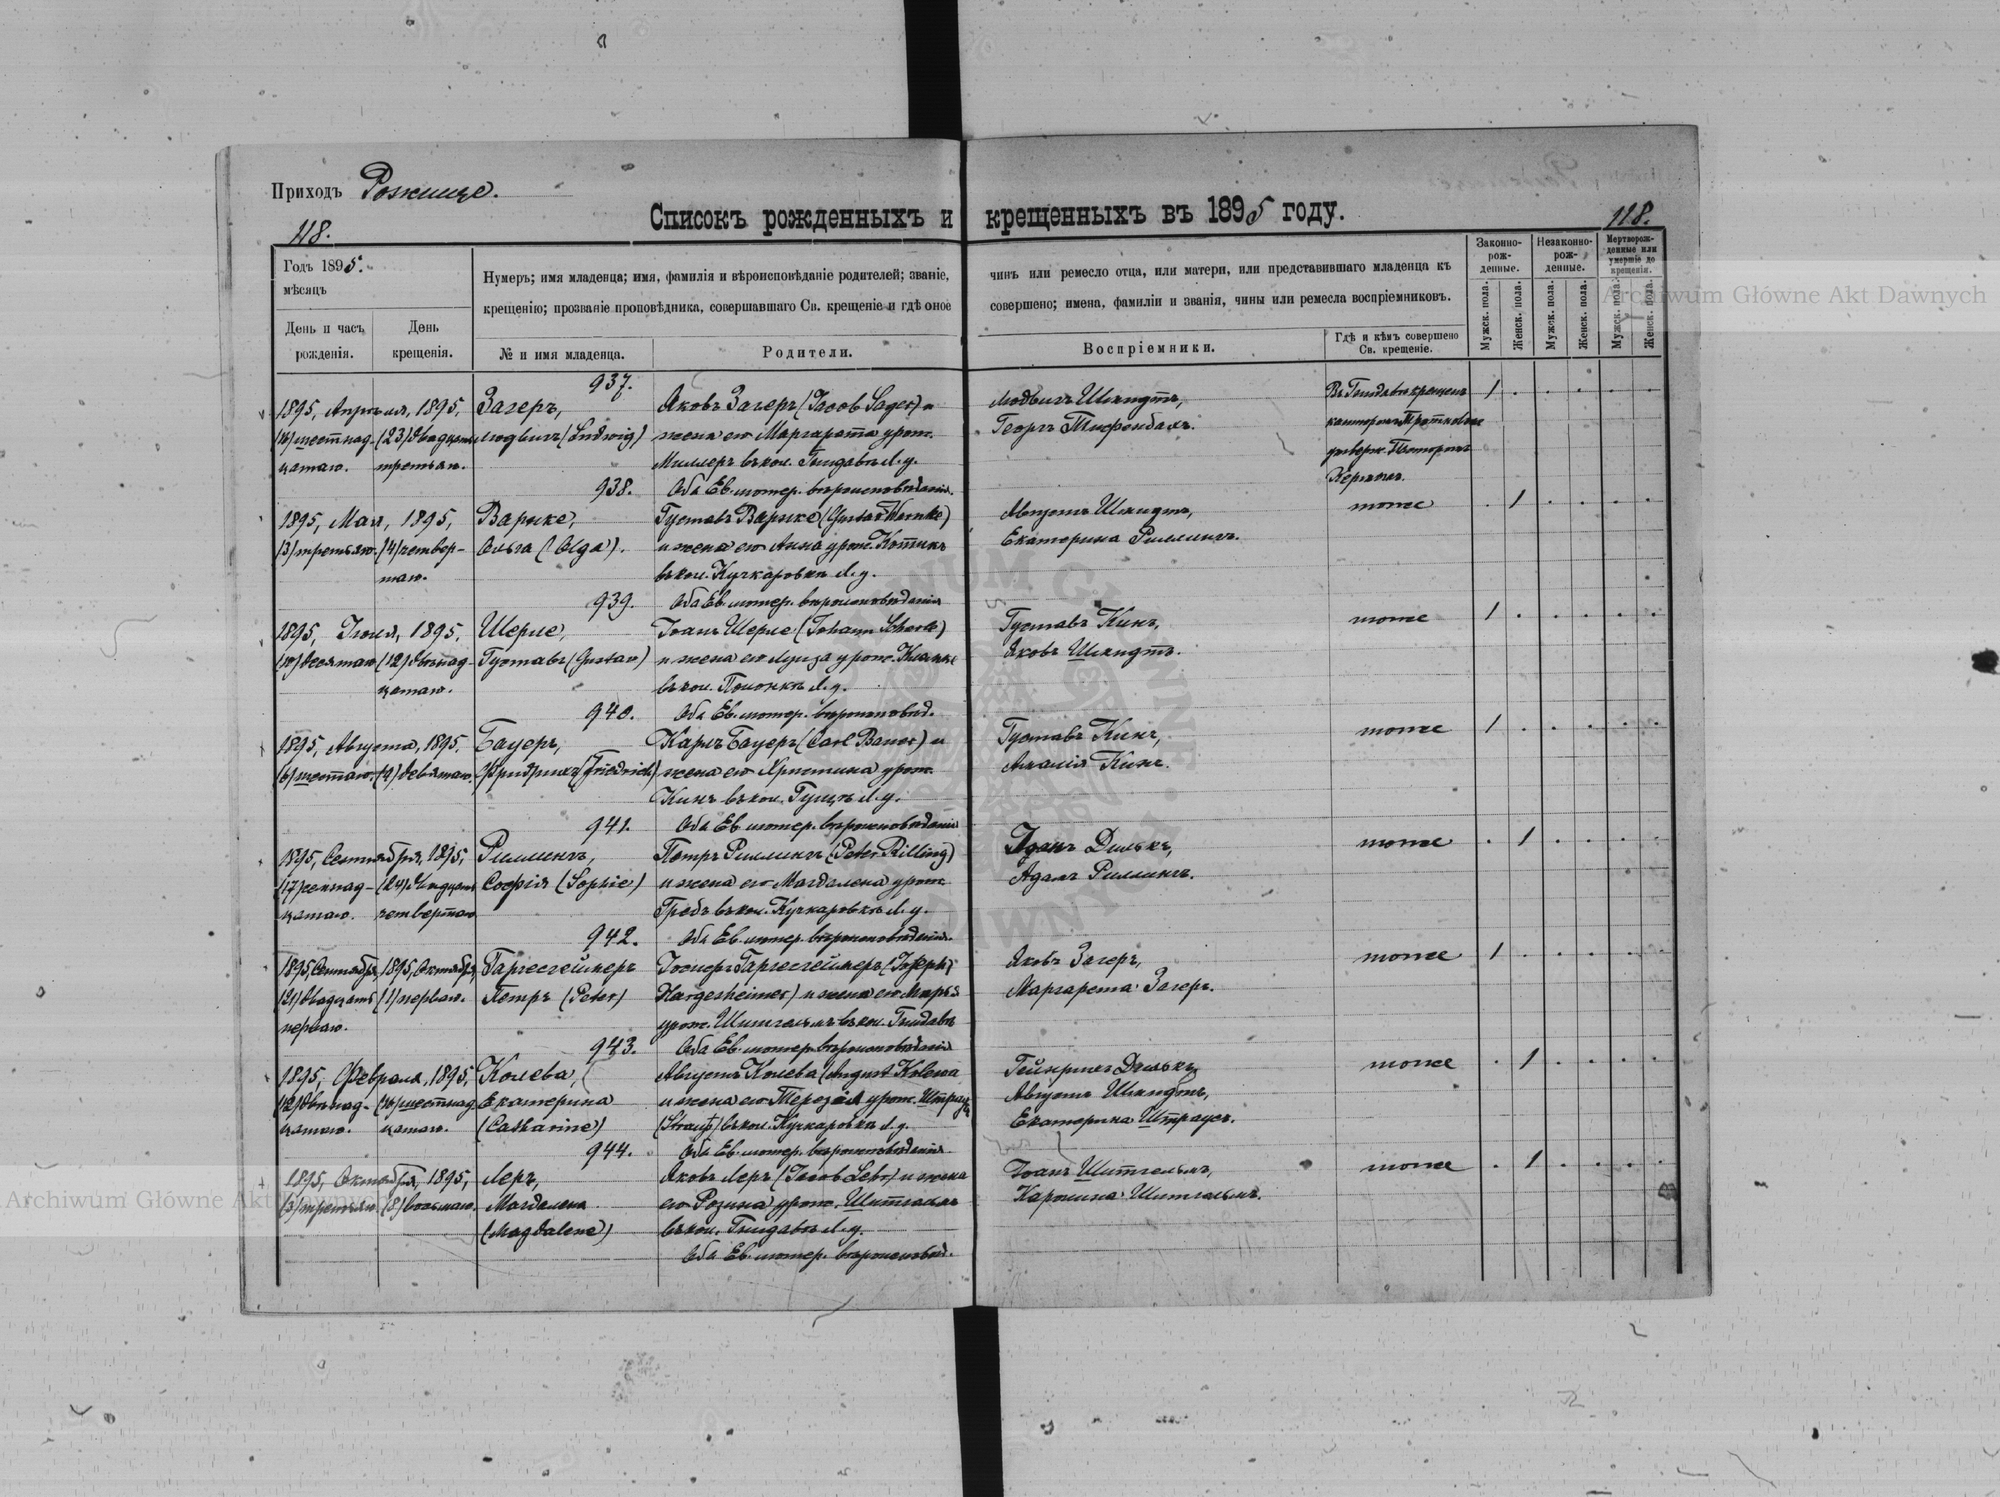 Приходъ Рожище.
Списокъ рожденныхъ и крещенныхъ въ 1895 году.
118.
118.
Годъ 1895.
мѣсяцъ
День и часъ рожденія.
День крещенія.
Нумеръ; имя младенца; имя, фамилія и вѣроисповѣданіе родителей; званіе, чинъ или ремесло отца, или матери, или представившаго младенца къ
крещенію; прозваніе проповѣдника, совершавшаго Св. крещеніе и гдѣ оное совершено; имена, фамиліи и званія, чины или ремесла воспріемниковъ.
№ и имя младенца.
Родители.
Воспріемники.
Гдѣ и кѣмъ совершено Св. крещеніе.
Законно-рож-денные.
Незаконно-рож-денные.
Мертворож-денные или умершіе до крещенія.
Мужск. пола.
Женск. пола.
Мужск. пола.
Женск. пола.
Мужск. пола.
Женск. пола.
937.
1895, Апрѣля, 1895, Загеръ, Яковъ Загеръ (Jacob Sager) и Людвигъ Шмидтъ,
(16) шестнад- (23) двадцать Людвигъ (Ludwig) жена его Маргарета урож. Георгъ Тифенбахъ.
цатаго. третьяго. Миллеръ въ кол. Гнидавѣ Л.у.
938. Оба Ев. лютер. вѣроисповѣданія.
1895, Мая, 1895, Варнке, Густавъ Варнке (Gustav Warnke) Августъ Шмидтъ, тоже
(3) третьяго. (4) четвер- Ольга (Olga). и жена его Анна урож. Екатерина Риллингъ.
таго. въ кол. Кучкаровкѣ Л.у.
939. Оба Ев. лютер. вѣроисповѣданія
1895, Іюля, 1895, Шерле, Іоганъ Шерле (Johann Scherle) Густавъ Кинъ, тоже
(10) десятаго (12) двѣнад- Густавъ (Gustav) и жена его Луиза урож. Яковъ Шмидтъ.
цатаго. въ кол. Полонкѣ Л.у.
940. Оба Ев. лютер. вѣроисповѣд.
1895, Августа, 1895, Бауеръ, Карлъ Бауеръ (Carl Bauer) и Густавъ Кинъ, тоже
(6) шестаго. (9) девятаго. Фридрихъ (Friedrich) жена его Христина урож. Амалія Кинъ.
Кинъ въ кол. Гущѣ Л.у.
941. Оба Ев. лютер. вѣроисповѣданія
1895, Сентября, 1895, Риллингъ, Петръ Риллингъ (Peter Rilling) Дилькъ, тоже
(17) семнад- (24) двадцать Софія (Sophie) и жена его Магдалена урож. Адамъ Риллингъ.
цатаго. четвертаго въ кол. Кучкаровкѣ Л.у.
942. Оба Ев. лютер. вѣроисповѣданія.
1895, Сентября, 1895, Октября, Гаргесгеймеръ Іосифъ Гаргесгеймеръ (Joseph Яковъ Загеръ, тоже
(21) двадцать (1) перваго. Петръ (Peter) Hargesheimer) и жена его Марія Маргарета Загеръ.
перваго. урож. Шитгельмъ въ кол. Гнидавѣ
943. Оба Ев. лютер. вѣроисповѣданія
1895, Февраля, 1895, Колева, Августъ Колева (August Kolewa Гейнрихъ Дилькъ, тоже
(12) двѣнад- (16) шестнад- Екатерина и жена его Терезія урож. Штраусъ Августъ Шмидтъ,
цатаго. цатаго. (Catharine) (Strauß) въ кол. Кучкаровкѣ Л.у. Екатерина Штраусъ.
944. Оба Ев. лютер. вѣроисповѣданія
1895, Октября, 1895, Леръ, Яковъ Леръ (Jacob Lehr) и жена Іоганъ Шитгельмъ, тоже
(3) третьяго (8) восьмаго. Магдалена его Розина урож. Шитгельмъ Каролина Шитгельмъ.
(Magdalene) въ кол. Гнидавѣ Л.у.
Оба Ев. лютер. вѣроисповѣд.
Archiwum Główne Akt Dawnych
Archiwum Główne Akt Dawnych